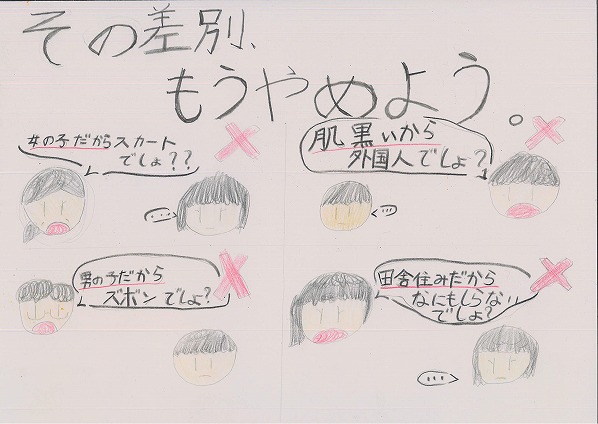 その差別、
もうやめよう。
女の子だからスカート
でしょ??
・・・
肌黒いから
外国人でしょ?
・・・
男の子だから
ズボンでしょ?
田舎住みだから
なにもしらない
でしょ?
・・・